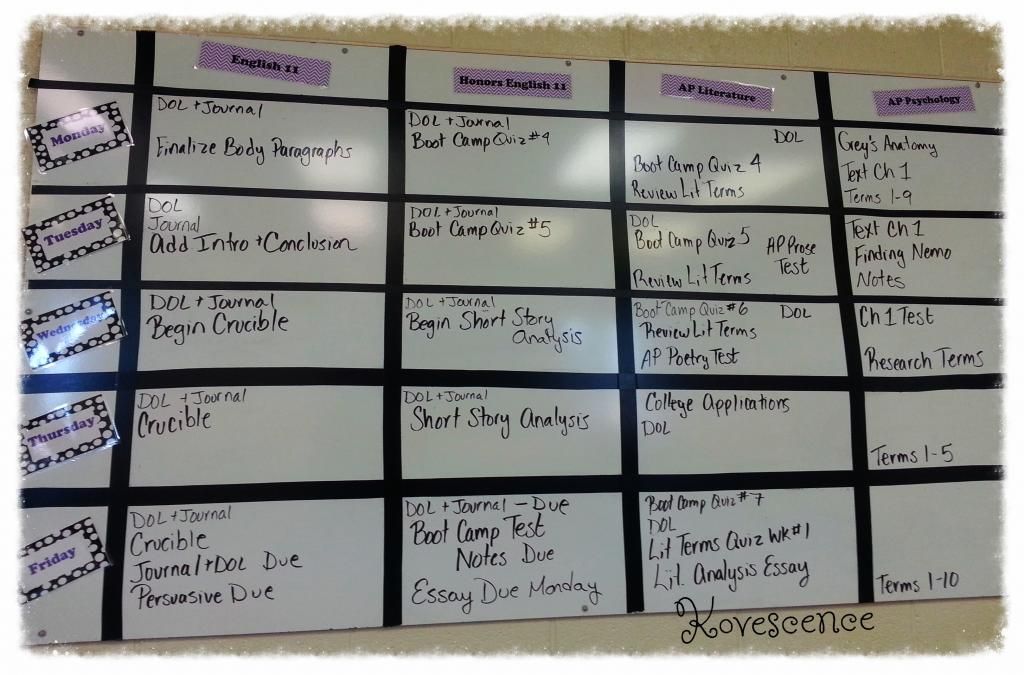 English 11
Honors English 11
AP Literature
AP Psychology
Monday
DOL + Journal
Finalize Body Paragraphs
DOL + Journal
Boot Camp Quiz #4
DOL
Boot Camp Quiz 4
Review Lit Terms
Grey's Anatomy
Text Ch 1
Terms 1-9
Tuesday
DOL
Journal
Add Intro + Conclusion
DOL + Journal
Boot Camp Quiz #5
DOL
Boot Camp Quiz 5
Review Lit Terms
AP Prose
Test
Text Ch 1
Finding Nemo
Notes
Wednesday
DOL + Journal
Begin Crucible
DOL + Journal
Begin Short Story
Analysis
Boot Camp Quiz #6 DOL
Review Lit Terms
AP Poetry Test
Ch 1 Test
Research Terms
Thursday
DOL + Journal
Crucible
DOL + Journal
Short Story Analysis
College Applications
DOL
Terms 1-5
Friday
DOL + Journal
Crucible
Journal + DOL Due
Persuasive Due
DOL + Journal - Due
Boot Camp Test
Notes Due
Essay Due Monday
Boot Camp Quiz #7
DOL
Lit Terms Quiz Wk #1
Lit. Analysis Essay
Terms 1-10
Kovescence